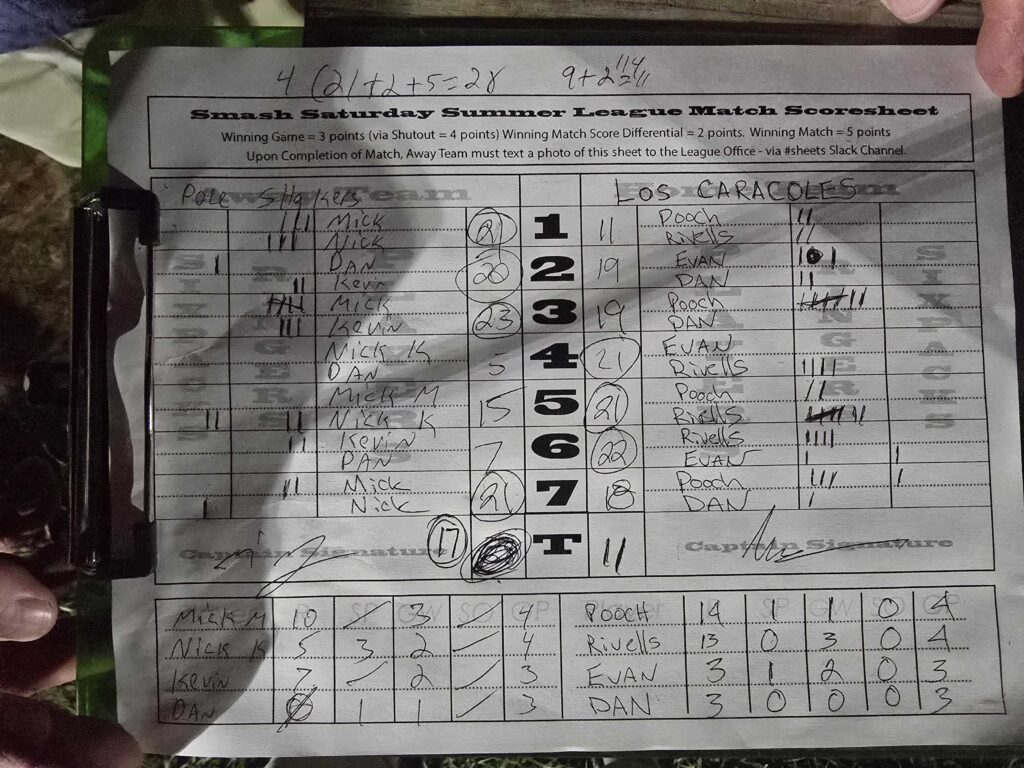 4 (21+2+5=28 9+2
Smash Saturday Summer League Match Scoresheet
Winning Game = 3 points (via Shutout = 4 points) Winning Match Score Differential = 2 points. Winning Match = 5 points
Upon Completion of Match, Away Team must text a photo of this sheet to the League Office - via #sheets Slack Channel.
Pole SHakers LOS CARACOLES
Mick 21 1 11 Pooch
Nick Rivells
DAN 20 2 19 EVAN
Kevin DAN
Mick 23 3 19 Pooch
Kevin DAN
Nick K 5 4 21 EVAN
DAN Rivells
Mick M 15 5 21 Pooch
Nick K Rivells
Kevin 7 6 22 Rivells
DAN EVAN
Mick 21 7 18 Pooch
Nick DAN
Captain Signature 17 T 11 Captain Signature
Mick M 10 3 4 POOCH 14 1 1 0 4
Nick K 5 3 2 4 Rivells 13 0 3 0 4
Kevin 7 2 3 EVAN 3 1 2 0 3
DAN 1 1 3 DAN 3 0 0 0 3